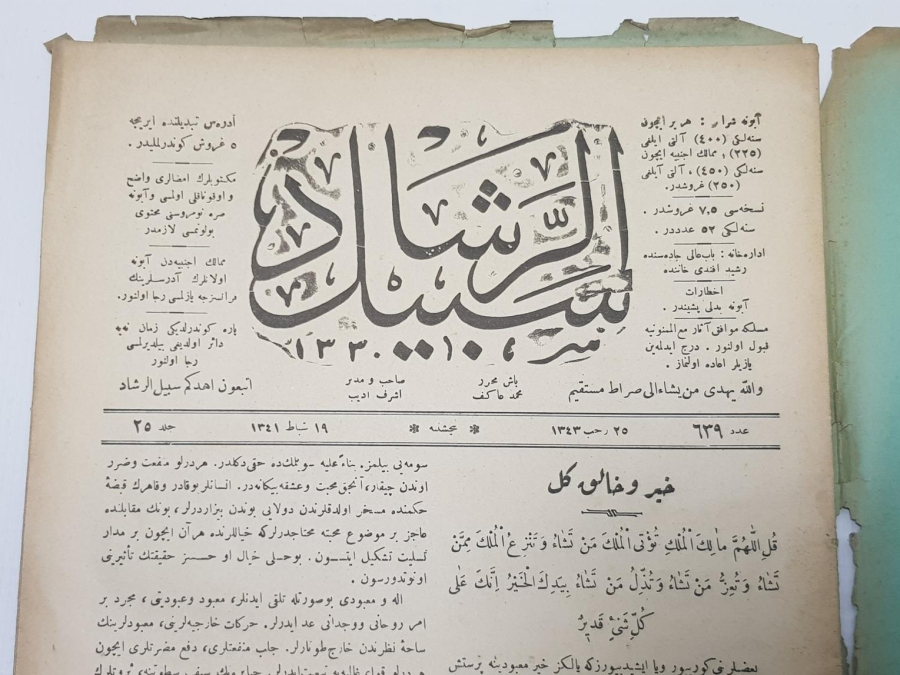 آبونه شرائطى : هر ير ايچون
سنه‌لكى (٤٠٠) آلتى آيلغى
(٢٢٥) ; ممالك اجنبيه ايچون
سنه‌لكى (٤٥٠) ، آلتى آيلغى
(٢٥٠) غروشدر .
نسخه‌سى ٧،٥ غروشدر .
سنه‌لكى ٥٢ عدددر .
اداره‌خانه : باب‌عالى جاده‌سنده
رشيد افندى خاننده
اخطارات
آبونه بدلى پشيندر .
مسلكه موافق آثار مع‌الممنونيه
قبول اولنور . درج ايدلمه‌ين
يازيلر اعاده اولنماز .
سبيل الرشاد
١٣٣٠
آدرس تبديلنده آيريجه
٥ غروش كوندرلمليدر .
مكتوبلرك امضالرى واضح
و اوقوناقلى اولمسى و آبونه
صره نومروسنى محتوى
بولونمسى لازمدر
ممالك اجنبيه‌دن آبونه
اولانلرك آدرسلرينك
فرانسزجه يازلمسى رجا اولنور.
پاره كوندرلديكى زمان نه‌يه
دائر اولديغى بيلديرلمسى
رجا اولنور
والله يهدى من يشاء الى صراط مستقيم
باش محرر
محمد عاكف
صاحب و مدير
اشرف اديب
اتبعون اهدكم سبيل الرشاد
عدد ٦٣٩
٢٥ رجب ١٣٤٣
❋ پنجشنبه ❋
١٩ شباط ١٣٤١
جلد ٢٥
خير و خالق كل
قُلِ اللّٰهُمَّ مَالِكَ الْمُلْكِ تُؤْتِى الْمُلْكَ مَنْ تَشَاءُ وَ تَنْزِعُ الْمُلْكَ مِمَّنْ
تَشَاءُ وَ تُعِزُّ مَنْ تَشَاءُ وَ تُذِلُّ مَنْ تَشَاءُ بِيَدِكَ الْخَيْرُ اِنَّكَ عَلٰى
كُلِّ شَىْءٍ قَدِيرٌ
بعضلرنى كورسور ويا ايشيديورزكه يالكز خير معبودينه پرستش
سومه‌يى بيلمز. بناءً عليه سويلمك‌ده حقى دكلدر. هردرلو منفعت وضرر
اوندن چيقار، آنجق محبت و عشقه بيكانه‌در. انسانلر بوقادر وقاهرك قبضهٔ
حكمنده مسخر اولدقلرندن دولايى بوندن بيزاردرلر ، بونك مقابلنده
عاجز بر موضوع محبته محتاجدرلركه خياللرنده هر آن ايچون بر مدار
تسليت تشكيل ايتسون . بوحسلى خيال او حسسز حقيقتك تأثيرينى
اونوتدورسون .
اله و معبودى بوصورتله تلقى ايدنلر، معبود وعبوديتى ، مجرد بر
امر روحانى ووجدانى عد ايدرلر. حركات خارجيه‌لرينى، معبودلرينك
ساحهٔ نظرندن خارج طوتارلر. جلب منفعتلرى ، دفع مضرتلرى ايچون